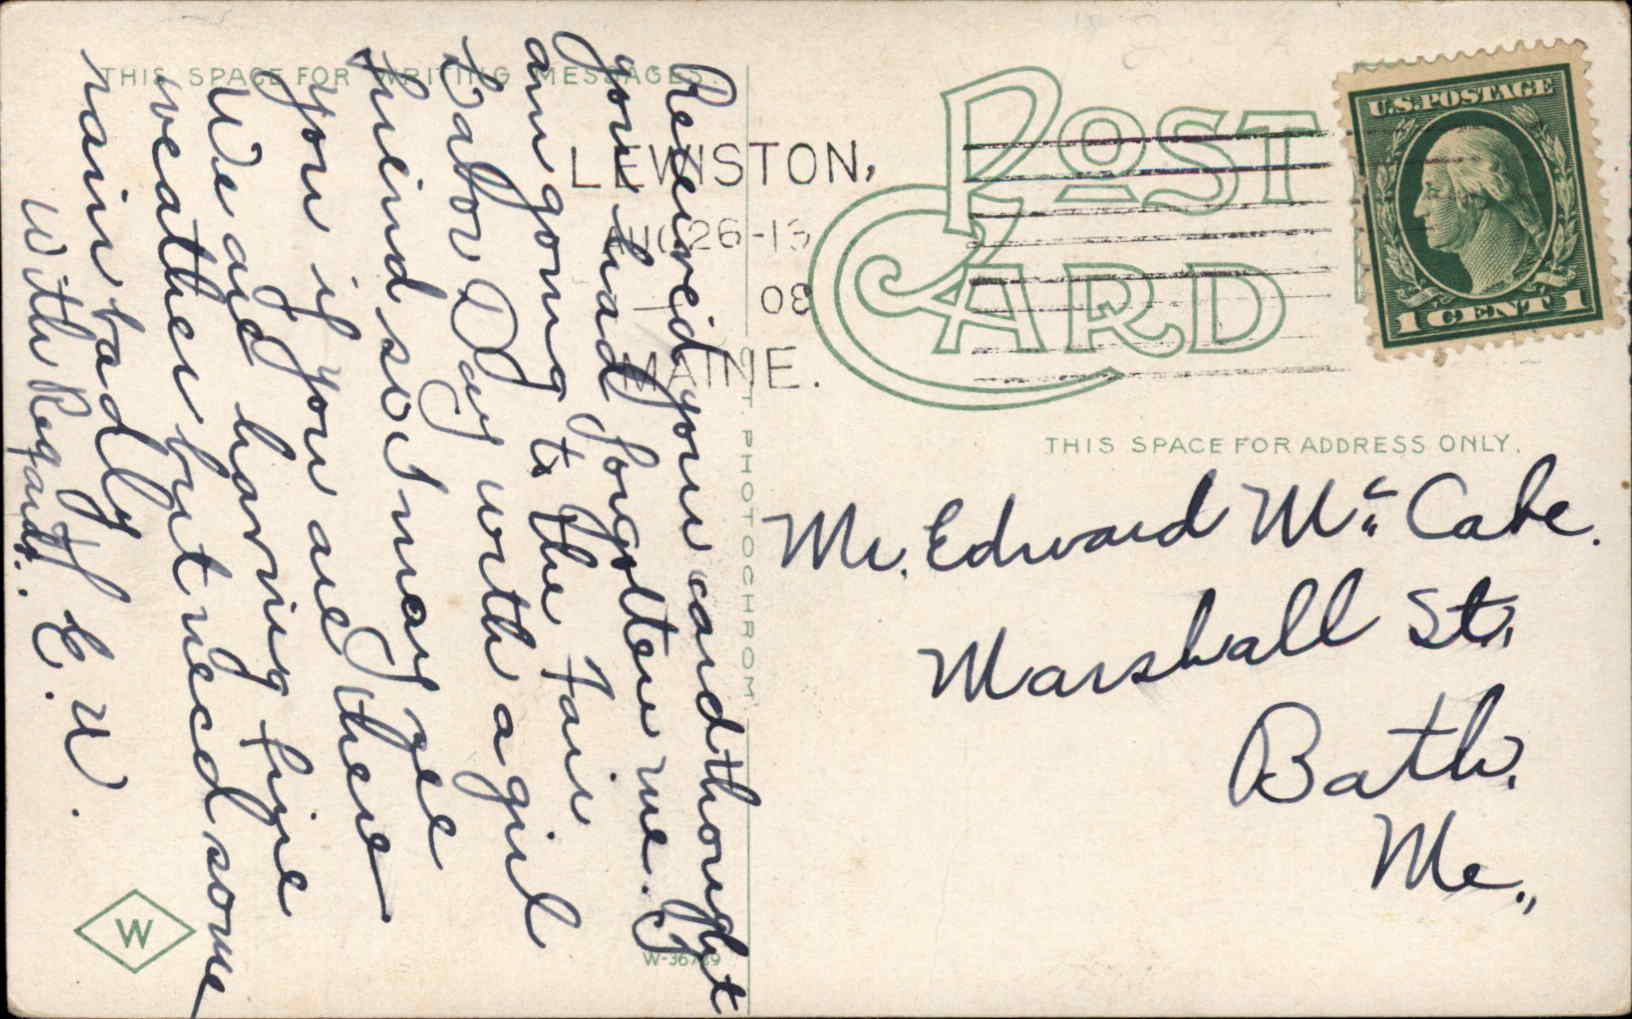 THIS SPACE FOR WRITING MESSAGES.
Received your card thought
you had forgotten me. I
am going to the Fair
Labor Day with a girl
friend so I may see
you if you are there
We are having fine
weather but need some
rain badly
With Regards. E. W.
W
W-36789
PHOTOCHROM
LEWISTON,
AUG 26-13
MAINE.
POST CARD
U.S. POSTAGE
1 CENT 1
THIS SPACE FOR ADDRESS ONLY.
Mr. Edward Mc Cabe.
Marshall St,
Bath,
Me.,